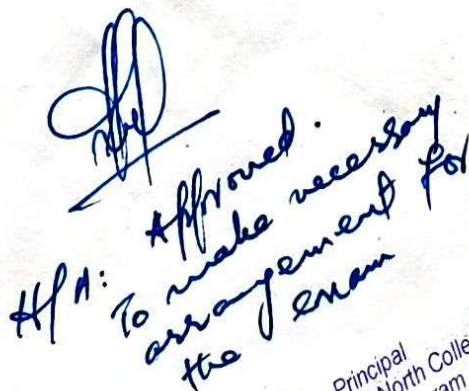 H/A: Approved.
To make necessary
arrangement for
the exam
Principal
North Colle
ram